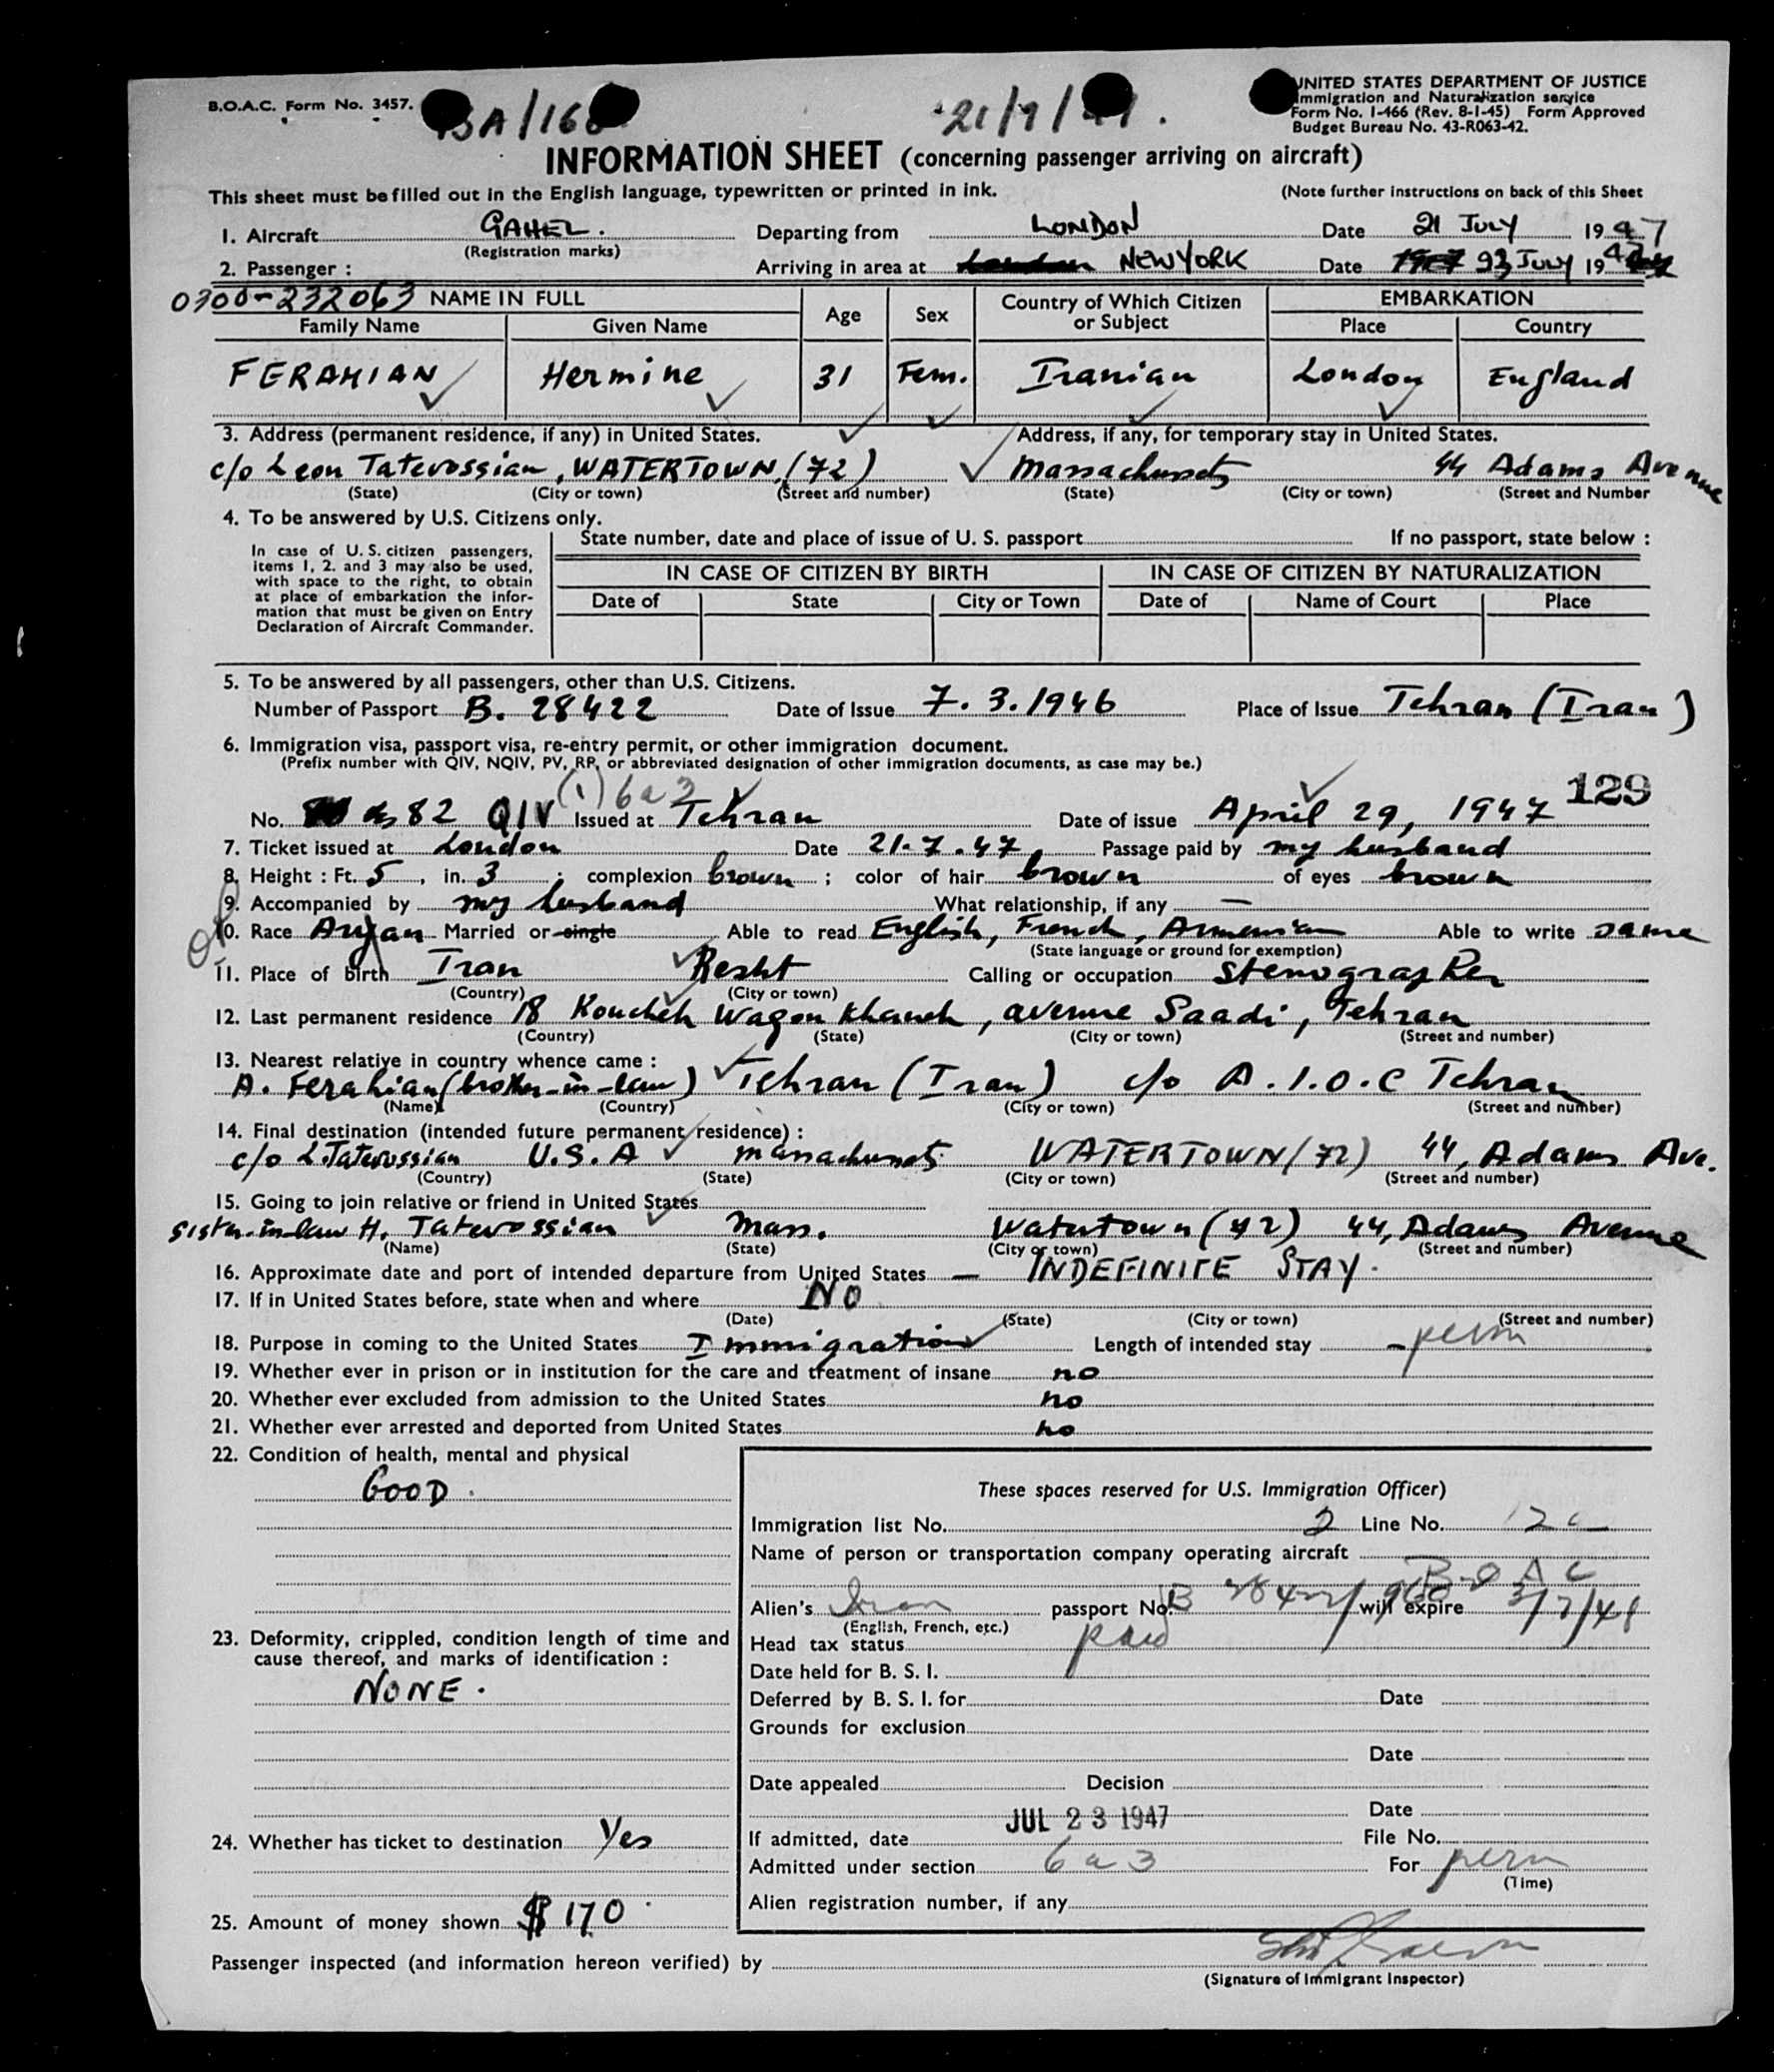 B.O.A.C. Form No. 3457.
UNITED STATES DEPARTMENT OF JUSTICE
Immigration and Naturalization service
Form No. I-466 (Rev. 8-1-45) Form Approved
Budget Bureau No. 43-R063-42.
INFORMATION SHEET (concerning passenger arriving on aircraft)
This sheet must be filled out in the English language, typewritten or printed in ink. (Note further instructions on back of this Sheet
1. Aircraft GAHEL. Departing from LONDON Date 21 JULY 1947
(Registration marks)
2. Passenger : Arriving in area at NEW YORK Date 23 JULY 1947
0300-232063 NAME IN FULL Age Sex Country of Which Citizen or Subject EMBARKATION
Family Name Given Name Place Country
FERAHIAN Hermine 31 Fem. Iranian London England
3. Address (permanent residence, if any) in United States. Address, if any, for temporary stay in United States.
c/o Leon Tatevossian, WATERTOWN, (72) Massachussets 44 Adams Avenue
(State) (City or town) (Street and number) (State) (City or town) (Street and Number
4. To be answered by U.S. Citizens only.
State number, date and place of issue of U. S. passport If no passport, state below :
In case of U. S. citizen passengers,
items 1, 2. and 3 may also be used,
with space to the right, to obtain
at place of embarkation the infor-
mation that must be given on Entry
Declaration of Aircraft Commander.
IN CASE OF CITIZEN BY BIRTH IN CASE OF CITIZEN BY NATURALIZATION
Date of State City or Town Date of Name of Court Place
5. To be answered by all passengers, other than U.S. Citizens.
Number of Passport B. 28422 Date of Issue 7. 3. 1946 Place of Issue Tehran (Iran)
6. Immigration visa, passport visa, re-entry permit, or other immigration document.
(Prefix number with QIV, NQIV, PV, RP, or abbreviated designation of other immigration documents, as case may be.)
(1) 6a3 129
No. 82 QIV Issued at Tehran Date of issue April 29, 1947
7. Ticket issued at London Date 21.7.47 Passage paid by my husband
8. Height : Ft. 5, in. 3 ; complexion brown ; color of hair brown of eyes brown
9. Accompanied by my husband What relationship, if any —
10. Race Aryan Married or single Able to read English, French, Armenian Able to write same
(State language or ground for exemption)
11. Place of birth Iran Resht Calling or occupation Stenographer
(Country) (City or town)
12. Last permanent residence 18 Koucheh Wagon Khaneh, avenue Saadi, Tehran
(Country) (State) (City or town) (Street and number)
13. Nearest relative in country whence came :
A. Ferahian (brother-in-law) Tehran (Iran) c/o A.I.O.C Tehran
(Name) (Country) (City or town) (Street and number)
14. Final destination (intended future permanent residence) :
c/o L. Tatevossian U.S.A Massachussets WATERTOWN (72) 44, Adams Ave.
(Country) (State) (City or town) (Street and number)
15. Going to join relative or friend in United States
Sister-in-law H. Tatevossian Mass. Watertown (72) 44, Adams Avenue
(Name) (State) (City or town) (Street and number)
16. Approximate date and port of intended departure from United States — INDEFINITE STAY.
17. If in United States before, state when and where NO
(Date) (State) (City or town) (Street and number)
18. Purpose in coming to the United States Immigration Length of intended stay - perm
19. Whether ever in prison or in institution for the care and treatment of insane no
20. Whether ever excluded from admission to the United States no
21. Whether ever arrested and deported from United States no
22. Condition of health, mental and physical
GOOD.
These spaces reserved for U.S. Immigration Officer)
Immigration list No. 2 Line No.
Name of person or transportation company operating aircraft
BOAC
Alien's Iran passport No. B will expire
(English, French, etc.)
23. Deformity, crippled, condition length of time and
cause thereof, and marks of identification :
NONE.
Head tax status paid
Date held for B. S. I.
Deferred by B. S. I. for Date
Grounds for exclusion
Date
Date appealed Decision
JUL 23 1947 Date
24. Whether has ticket to destination Yes
If admitted, date File No.
Admitted under section 6a3 For perm
(Time)
Alien registration number, if any
25. Amount of money shown $170
Passenger inspected (and information hereon verified) by
(Signature of Immigrant Inspector)